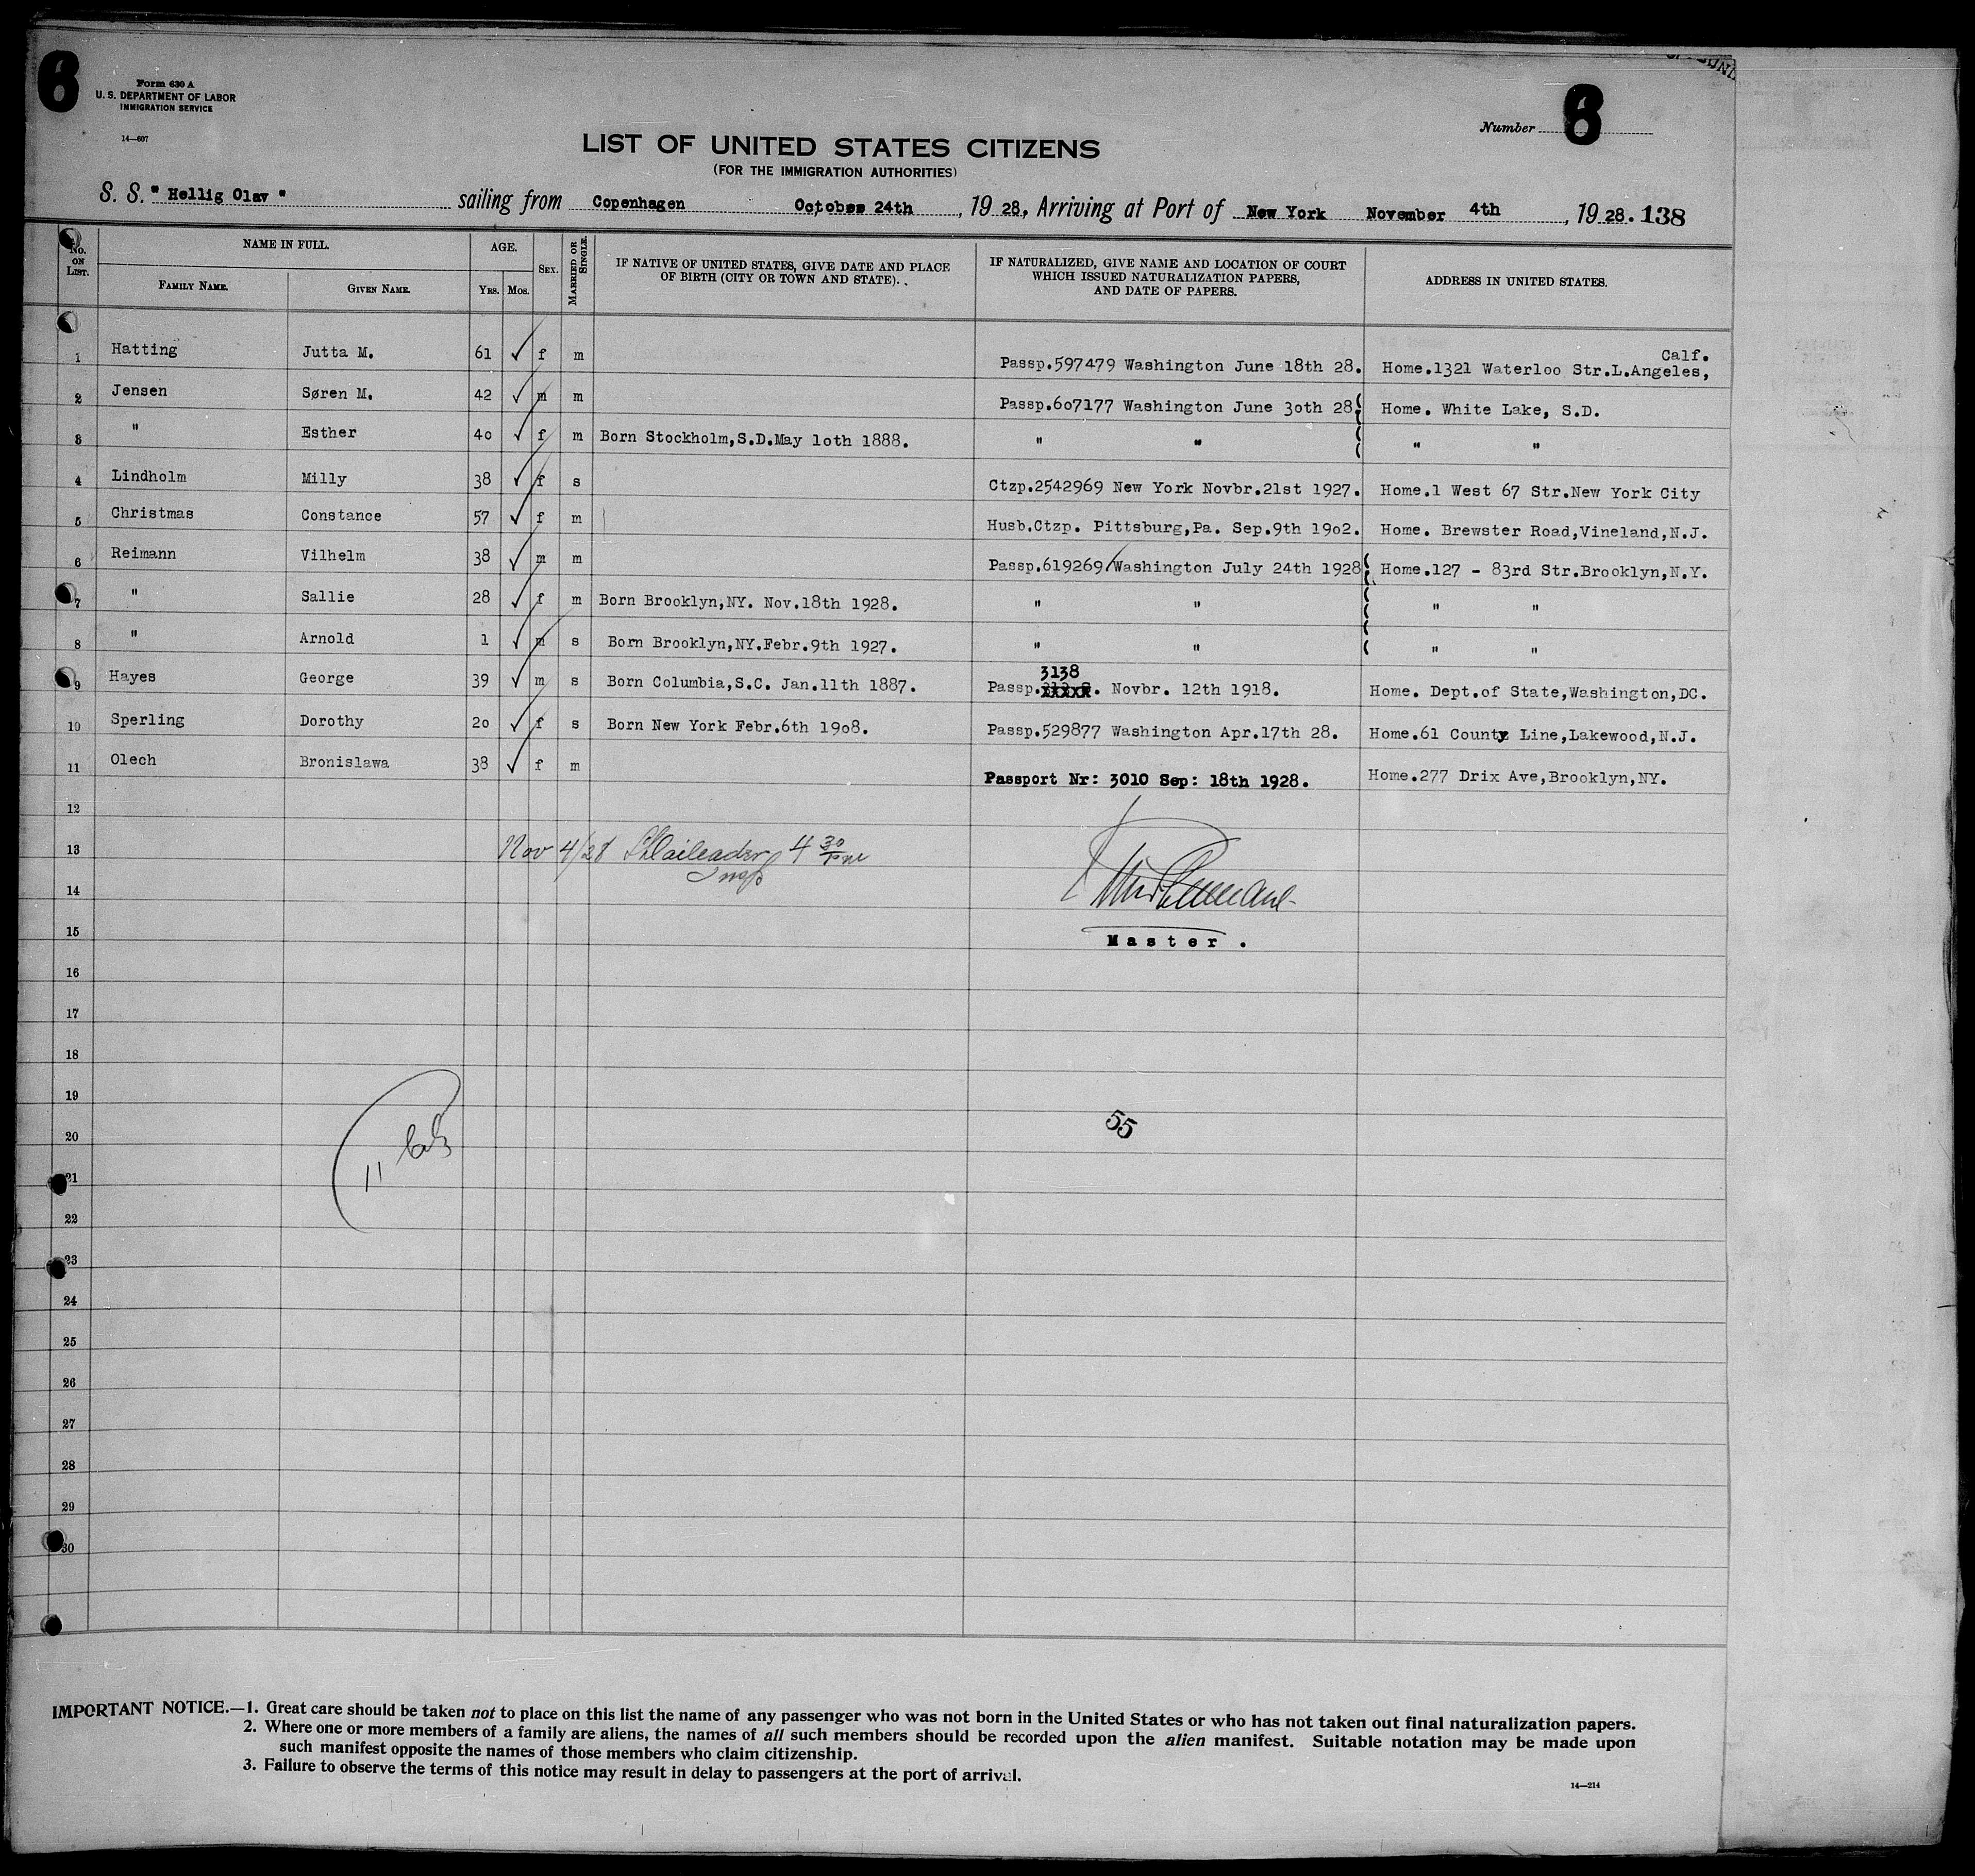 6
Form 630 A
U. S. DEPARTMENT OF LABOR
IMMIGRATION SERVICE
14—607
Number 6
LIST OF UNITED STATES CITIZENS
(FOR THE IMMIGRATION AUTHORITIES)
S. S. " Hellig Olav " sailing from Copenhagen October 24th, 19 28, Arriving at Port of New York November 4th, 19 28. 138
No. ON LIST. NAME IN FULL. AGE. SEX. MARRIED OR SINGLE. IF NATIVE OF UNITED STATES, GIVE DATE AND PLACE OF BIRTH (CITY OR TOWN AND STATE). IF NATURALIZED, GIVE NAME AND LOCATION OF COURT WHICH ISSUED NATURALIZATION PAPERS, AND DATE OF PAPERS. ADDRESS IN UNITED STATES.
FAMILY NAME. GIVEN NAME. YRS. MOS.
1 Hatting Jutta M. 61 ✓ f m Passp.597479 Washington June 18th 28. Home.1321 Waterloo Str.L.Angeles, Calf.
2 Jensen Søren M. 42 ✓ m m Passp.607177 Washington June 3oth 28. Home. White Lake, S.D.
3 " Esther 4o ✓ f m Born Stockholm,S.D.May 1oth 1888. " " " "
4 Lindholm Milly 38 ✓ f s Ctzp.2542969 New York Novbr.21st 1927. Home.1 West 67 Str.New York City
5 Christmas Constance 57 ✓ f m Husb.Ctzp. Pittsburg,Pa. Sep.9th 19o2. Home. Brewster Road,Vineland,N.J.
6 Reimann Vilhelm 38 ✓ m m Passp.619269 Washington July 24th 1928 Home.127 - 83rd Str.Brooklyn,N.Y.
7 " Sallie 28 ✓ f m Born Brooklyn,NY. Nov.18th 1928. " " " "
8 " Arnold 1 ✓ m s Born Brooklyn,NY.Febr.9th 1927. " " " "
9 Hayes George 39 ✓ m s Born Columbia,S.C. Jan.11th 1887. Passp. 3138. Novbr. 12th 1918. Home. Dept.of State,Washington,DC.
10 Sperling Dorothy 2o ✓ f s Born New York Febr.6th 19o8. Passp.529877 Washington Apr.17th 28. Home.61 County Line,Lakewood,N.J.
11 Olech Bronislawa 38 ✓ f m Passport Nr: 3010 Sep: 18th 1928. Home.277 Drix Ave,Brooklyn,NY.
12
13 Nov 4/28 4 30 pm
Insp
14
15 Master.
16
17
18
19
55
20
11
21
22
23
24
25
26
27
28
29
30
IMPORTANT NOTICE.—1. Great care should be taken not to place on this list the name of any passenger who was not born in the United States or who has not taken out final naturalization papers.
2. Where one or more members of a family are aliens, the names of all such members should be recorded upon the alien manifest. Suitable notation may be made upon
such manifest opposite the names of those members who claim citizenship.
3. Failure to observe the terms of this notice may result in delay to passengers at the port of arrival.
14—214